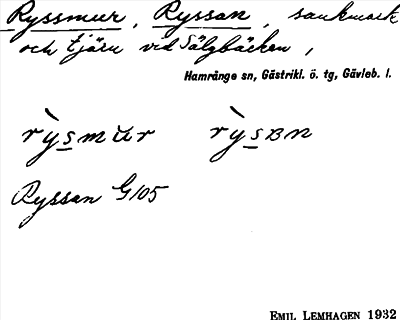 Ryssmur, Ryssan, sankmark
och tjärn vid Sälgbäcken,
Hamrånge sn, Gästrikl. ö. tg, Gävleb. l.
rỳsmur rỳsʙn
Ryssan G105
EMIL LEMHAGEN 1932